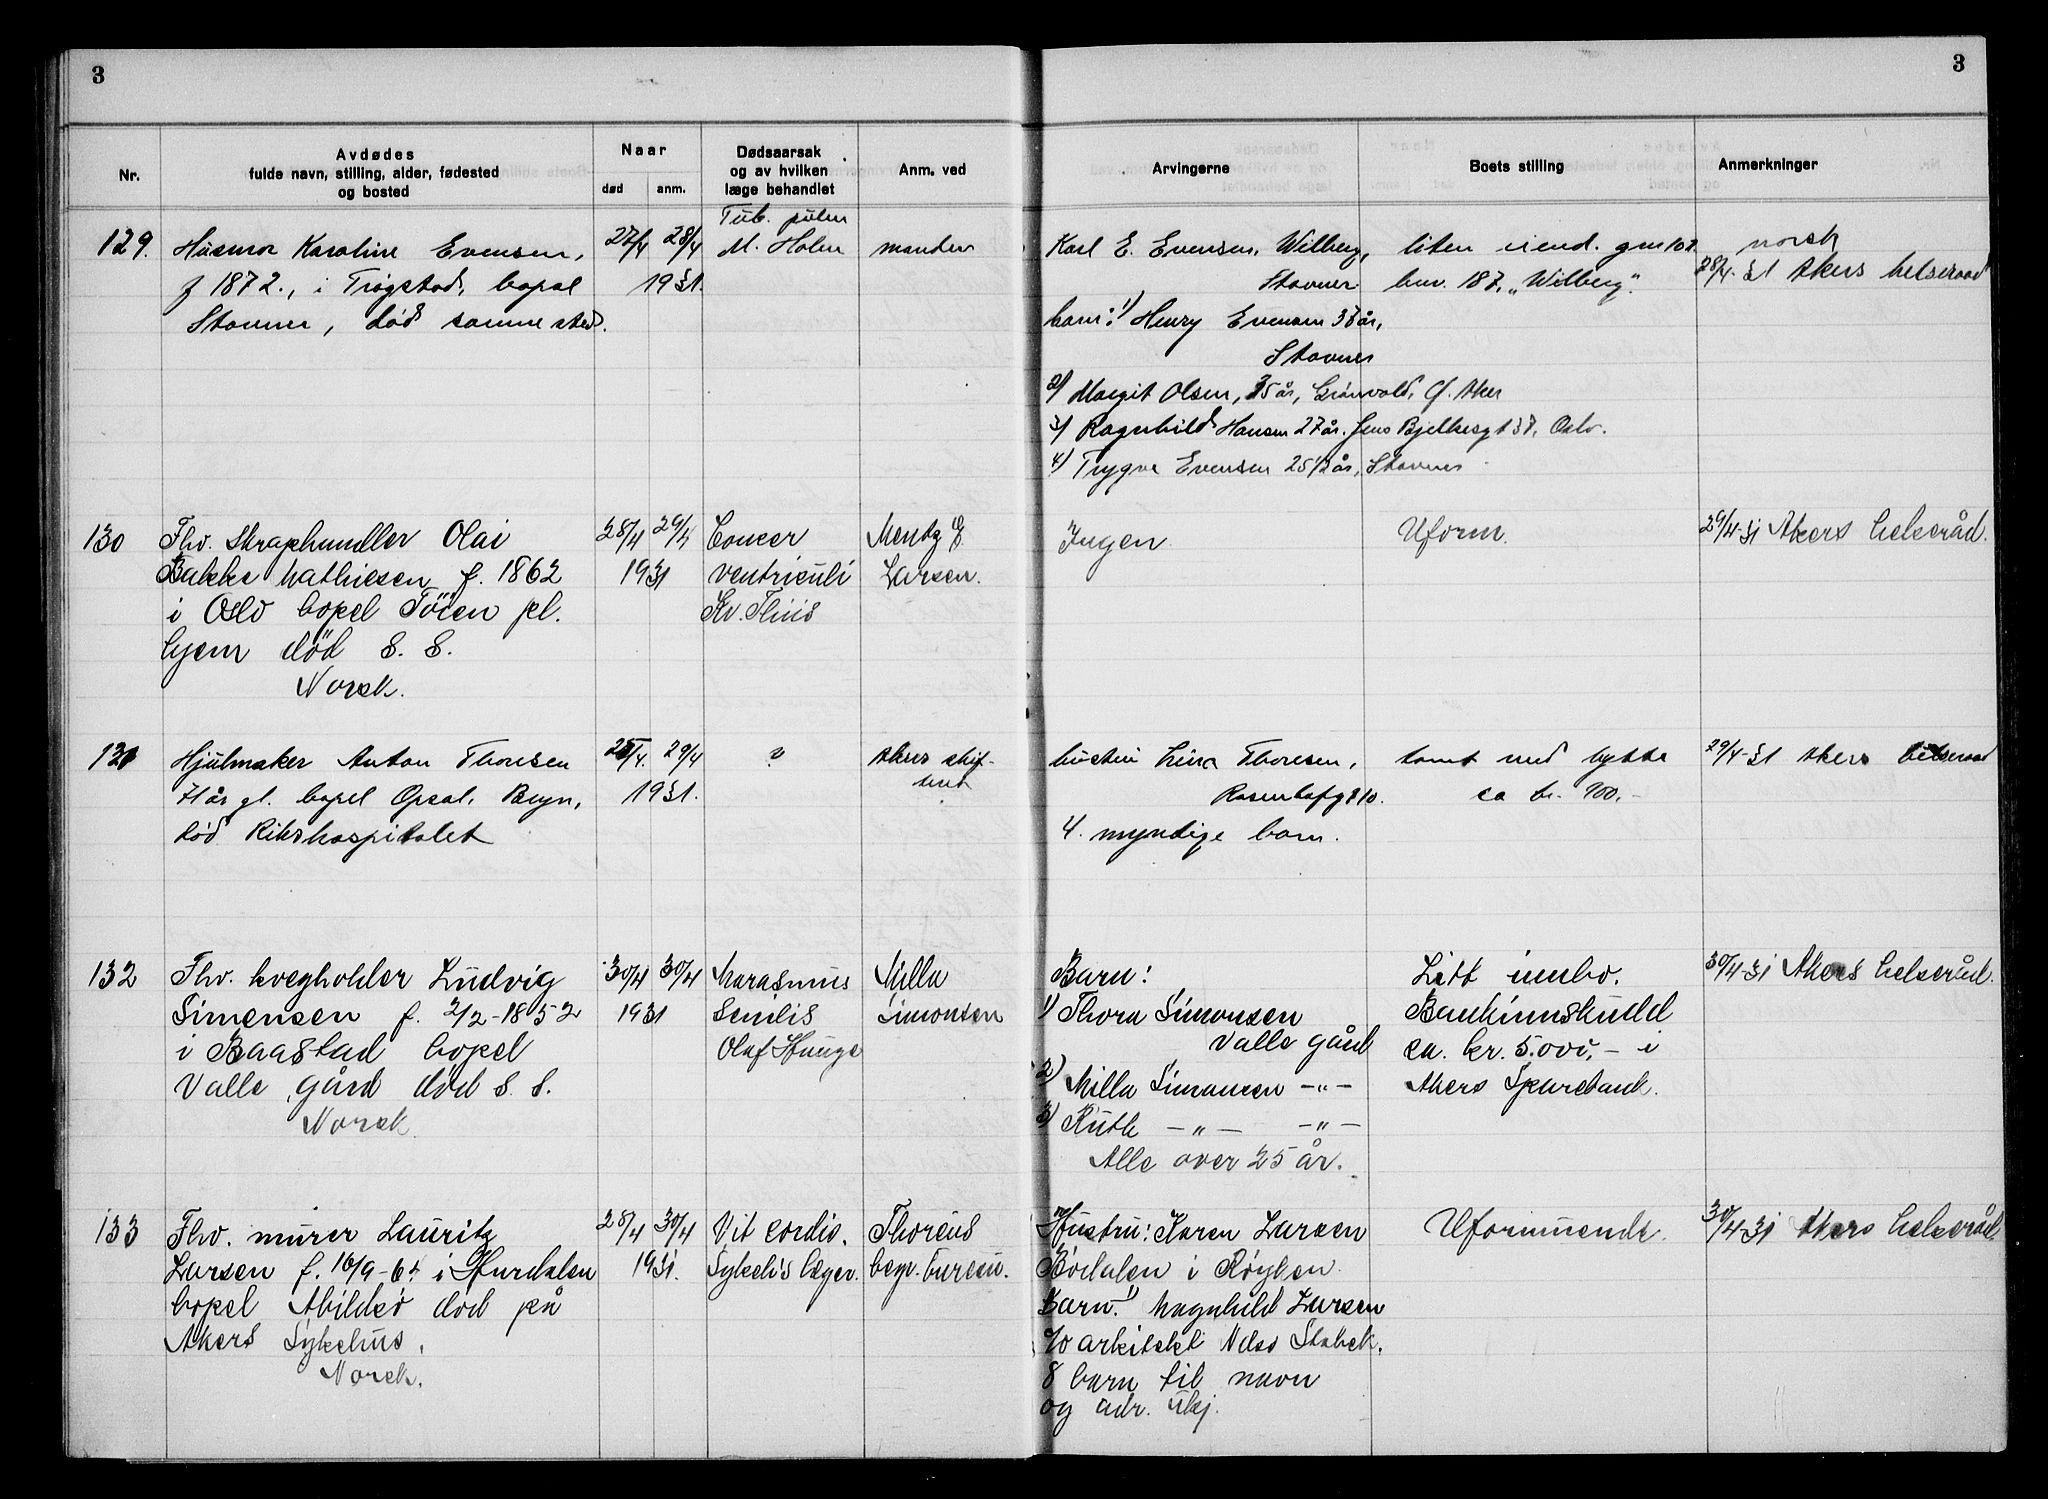 3
3
Nr.
Avdødes
fulde navn, stilling, alder, fødested
og bosted
Naar
død
anm.
Dødsaarsak
og av hvilken
læge behandlet
Anm. ved
Arvingerne
Boets stilling
Anmerkninger
129.
Husmor Karoline Evensen,
f 1872., i Trøgstad, bopal
Stovner, død samme sted.
27/4 28/4
1931.
Tub. pulm
M. Holm
manden
Karl E. Evensen, Wilberg,
Stovner
barn: 1) Henry Evensen 38 år,
Stovner
2) Margit Olsen, 35 år, Grønvold, Ø. Aker
3) Ragnhild Hansen 27 år. Jens Bjelkesgt 37, Oslo.
4) Trygve Evensen 25 1/2 år, Stovner
liten eiend. gnr 107.
bnr. 187, „Wilberg".
norsk
28/4-31 Akers helseraad
130
Fhv. Skraphandler Olai
Bakke Mathiesen f. 1862
i Oslo bopel Tøien pl.
hjem død S. S.
Norsk.
28/4 29/4
1931
Cancer
ventriculi
Kv. Thiis
Mentz E.
Larsen.
Ingen
Uform.
29/4-31 Akers helseråd.
131
Hjulmaker Anton Thoresen
71 år gl. bopel Opsal, Bryn,
død Rikshospitalet
29/4
1931.
?
Akers skif-
teret
hustru Lina Thoresen,
Rosenhofgt 10.
4. myndige barn.
tomt med hytte
ca kr. 900.-
29/4-31 Akers helseraad
132
Fhv. kvegholder Ludvig
Simensen f. 2/2-1852
i Baastad bopel
Valle gård død S. S.
Norsk
30/4 30/4
1931
Marasmus
Senilis
Olaf Hauge
Milla
Simonsen
Barn:
1) Thora Simonsen
Valle gård
2) Milla Simonsen -„-
3) Ruth -„- -„-
Alle over 25 år.
Litt innbo.
Bankinnskudd
ca. kr. 5.000,- i
Akers Sparebank.
30/4-31 Akers helseråd.
133
Fhv. murer Lauritz
Larsen f. 16/9-64 i Hurdalen
bopel Abildsø død på
Akers Sykehus.
Norsk.
28/4 30/4
1931.
Vit cordis.
Sykehs læger.
Thorens
begr. bureau.
Hustru: Karen Larsen
Bødalen i Røyken
Barn: 1) Magnhild Larsen
c/o arkitekt Næss Stabek.
8 barn til navn
og adr. ubkj.
Uformuende.
30/4-31 Akers helseråd.